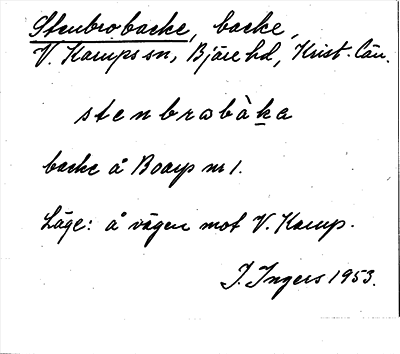 Stenbrobacke, backe,
V. Karups sn, Bjäre hd, Krist. län.
stenbrobàka
backe å Boarp nr 1.
Läge: å vägen mot V. Karup.
I. Ingers 1953.